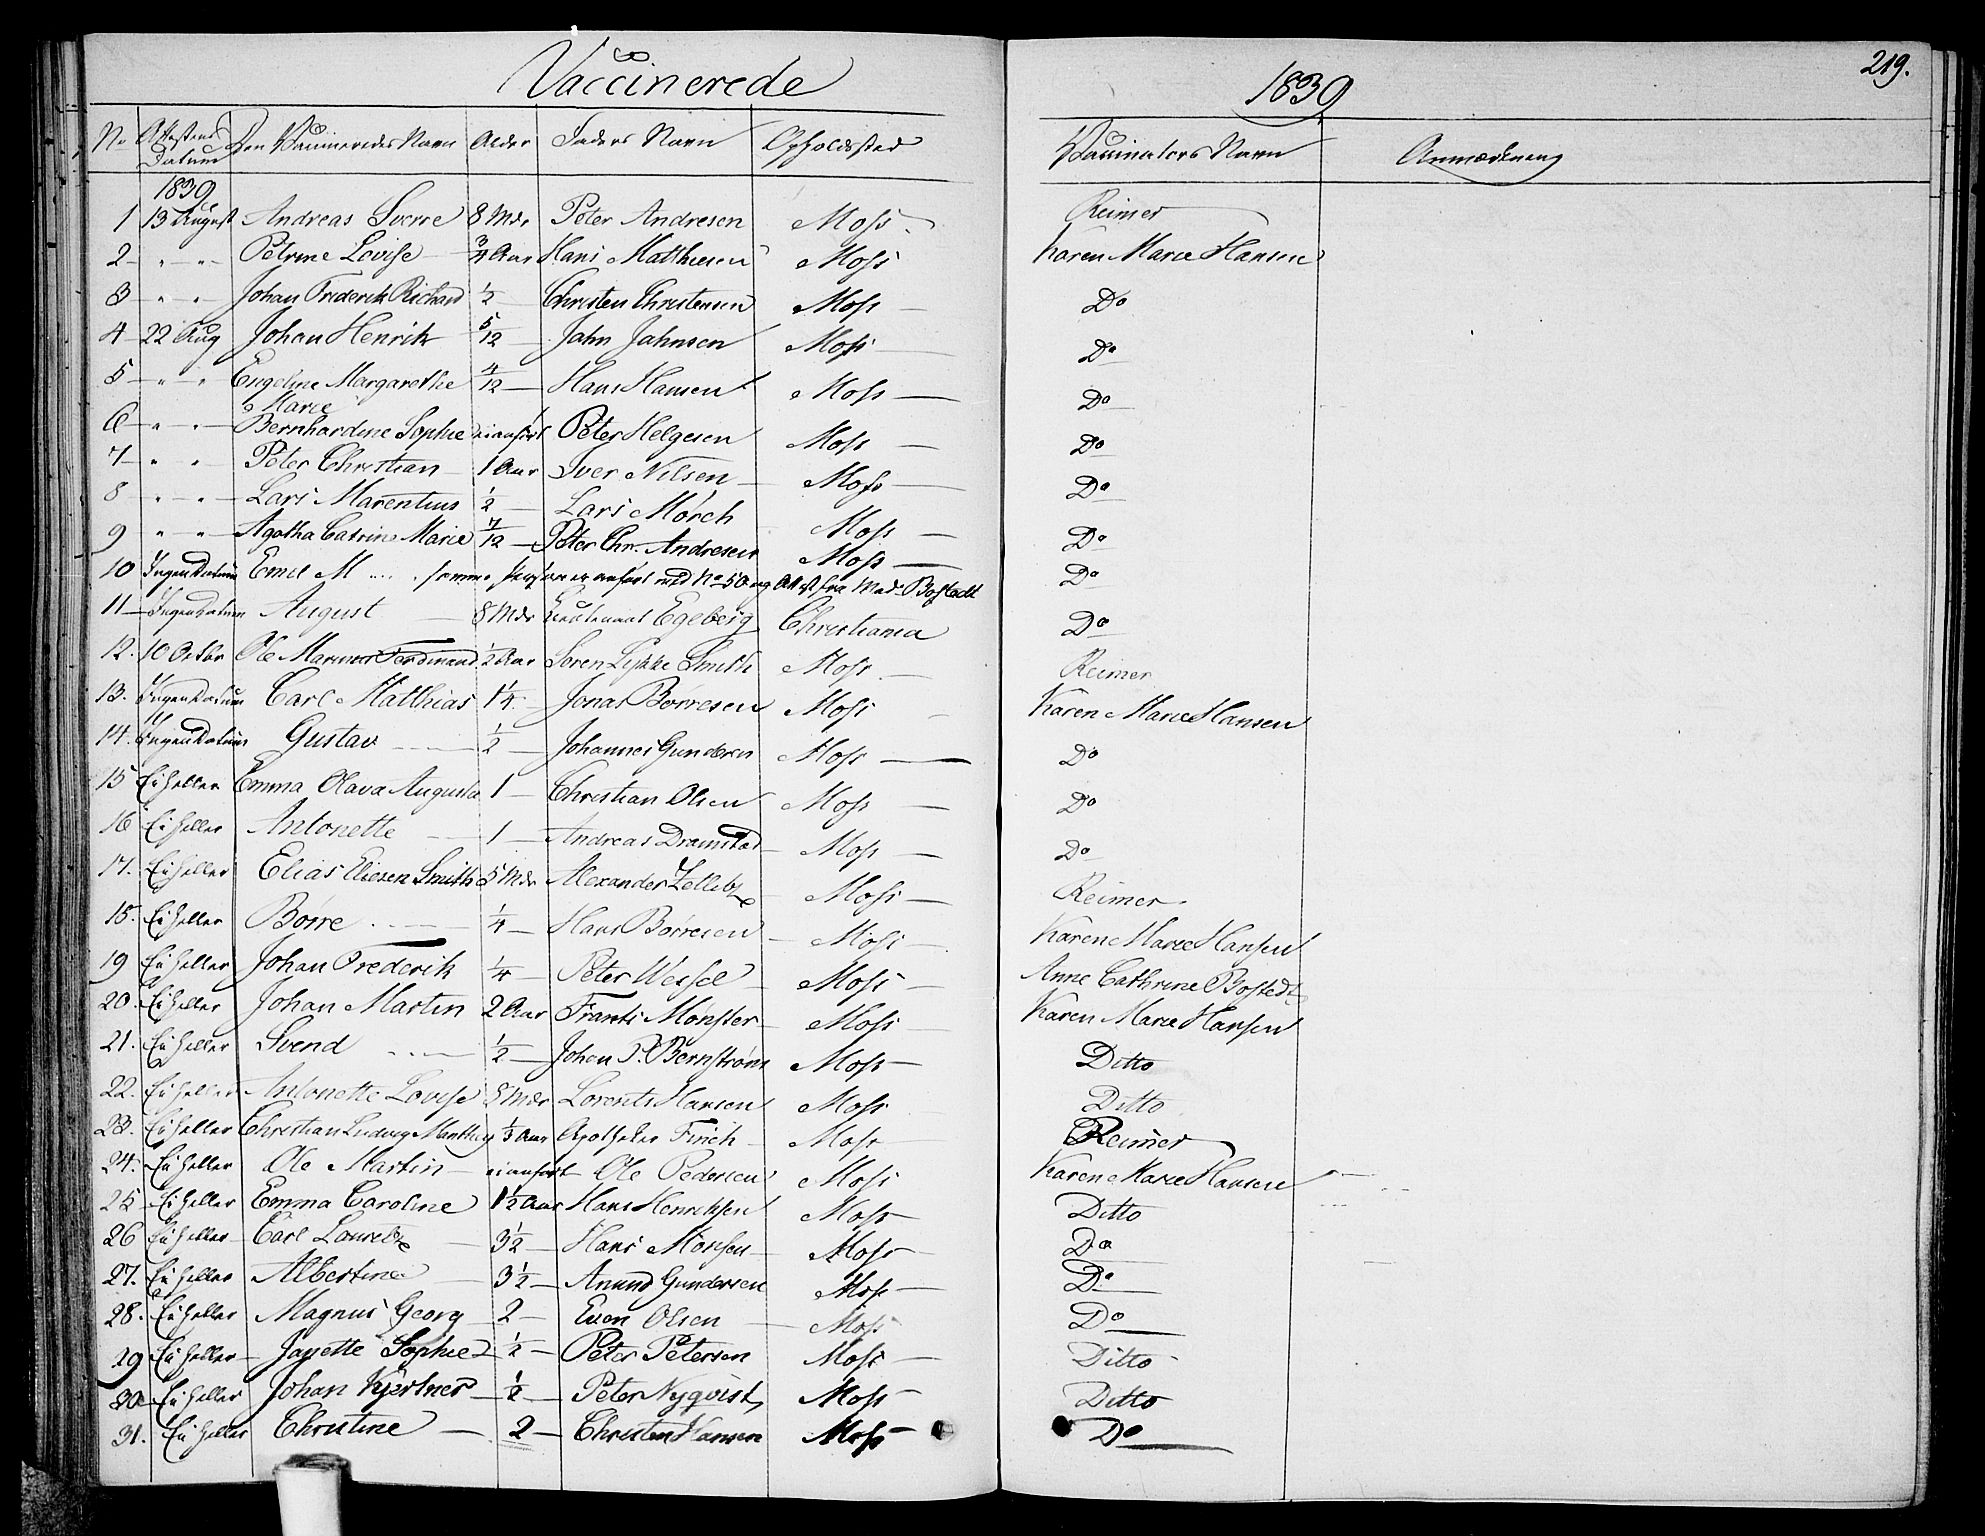 Vaccinerede 1839 219.
No Attestens Datum Den Vaccineredes Navn Alder Faders Navn Opholdssted Vaccinators Navn Anmærkning
1839
1 13 August Andreas Sverre 8 Mdr Peter Andresen Moss. Reimer
2 - " - " - Petrine Lovise 3/4 Aar Hans Mathiesen Moss Karen Marie Hansen
3 - " - " - Johan Frederik Richard 1/2 — Christen Christensen Moss — Do
4 - 22 Aug Johan Henrik 5/12 — Jahn Jahnsen Moss — Do
5 - " - " Engeline Margarethe 4/12 — Hans Hansen Moss — Do
Marie
6 - " - " - Bernhardine Sophie ei anført Peter Helgesen Moss — Do
7 - " - " Peter Christian — 1 Aar Iver Nilsen — Moss — Do
8 " - " - Lars Marentius 1/2 — Lars Mörch Moss — Do
9 " - " - Agatha Catrine Marie 7/12 — Peter Chr. Andresen Moss — Do
10 Ingen Datum Emil M .... samme Person er anført med No 5 og Attest fra Mad. Bostedt Do
11 — Ingen Datum August — 8 Mdr Lieutenant Egeberg Christiania Do
12. 10 Octbr Ole Marinus Ferdinand 1/2 Aar Søren Lykke Smith Moss — Reimer
13. Ingen Datum Carl Matthias 1 1/4 — Jonas Børresen Moss - Karen Marie Hansen
14. Ingen Datum Gustav — 1/2 — Johannes Gundersen Moss — Do
15 Ei heller Emma Olava Augusta 1 — Christian Olsen Moss — Do
16 Ei heller Antonette — 1 — Andreas Dramstad — Moss — Do
17. Ei heller Elias Eliesen Smith 5 Mdr Alexander — Moss — Reimer
15. Ei heller Börre — 1/4 — Hans Börresen — Moss — Karen Marie Hansen
19 Ei heller Johan Frederik 1/4 — Peter Weisel — Moss — Anne Cathrine Bostedt
20. Ei heller Johan Martin 2 Aar Frants Mönster — Moss — Karen Marie Hansen
21. Ei heller Svend — 1/2 — Johan P. Bernström Moss — Ditto
22. Ei heller Antonette Lovise 8 Mdr Lorents Hansen Moss Ditto
23. Ei heller Christian Ludvig Manthey 1/3 Aar Apotheker — Moss — Reimer
24. Ei heller Ole Martin — ei anført Ole Pedersen Moss Karen Marie Hansen
25 Ei heller Emma Caroline 1 1/2 Aar Hans Henriksen Moss — Ditto
26 Ei heller Carl Lauretz — 3 1/2 — Hans Mönsen — Moss — Do
27. Ei heller Albertine — 3 1/2 — Anund Gundersen Moss — Do
28. Ei heller Magnus Georg — 2 — Even Olsen — Moss Do
29 Ei heller — Janette Sophie 1/2 — Peter Petersen Moss — Ditto
30 Ei heller Johan Kjerlner — 1/2 — Peter Nyqvist Moss — Ditto
31. Ei heller Christine — 2 — Christen Hansen Moss — Do